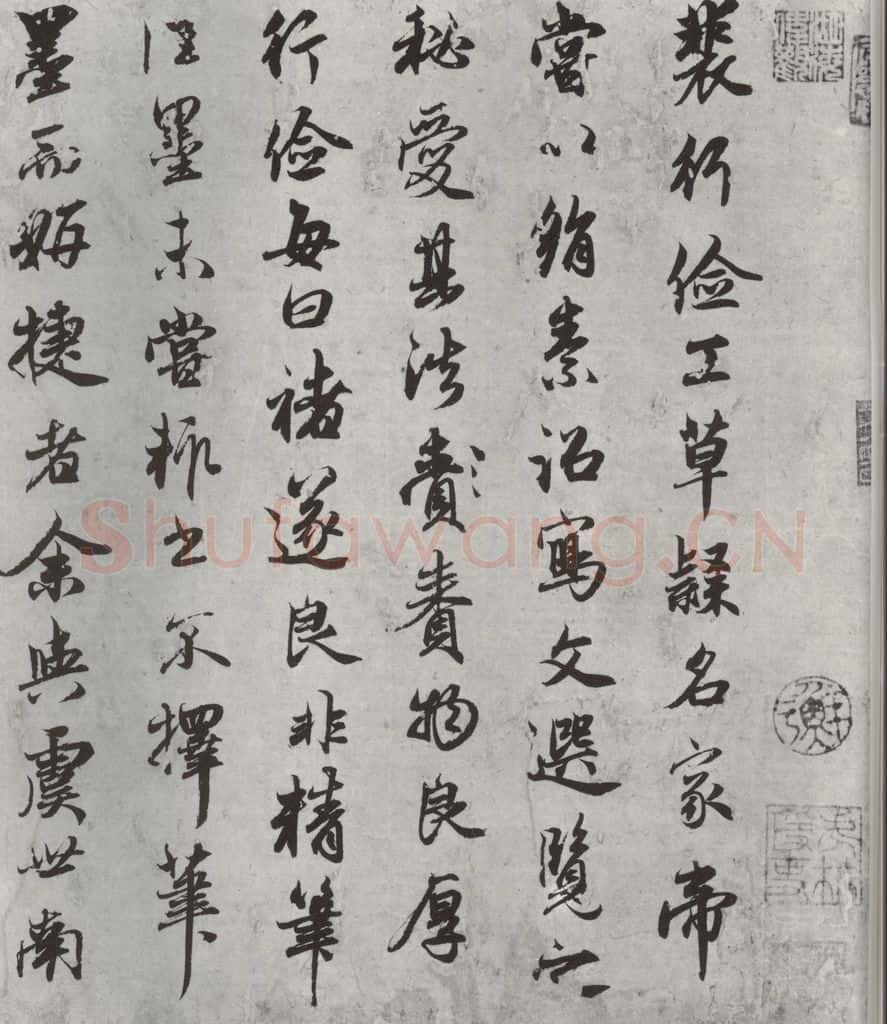 裴行儉工草隸名家帝
嘗以絹素詔寫文選覽之
秘愛其法賚賚物良厚
行儉每曰褚遂良非精筆
佳墨未嘗輒書不擇筆
墨而妍捷者余與虞世南
Shufawang.CN